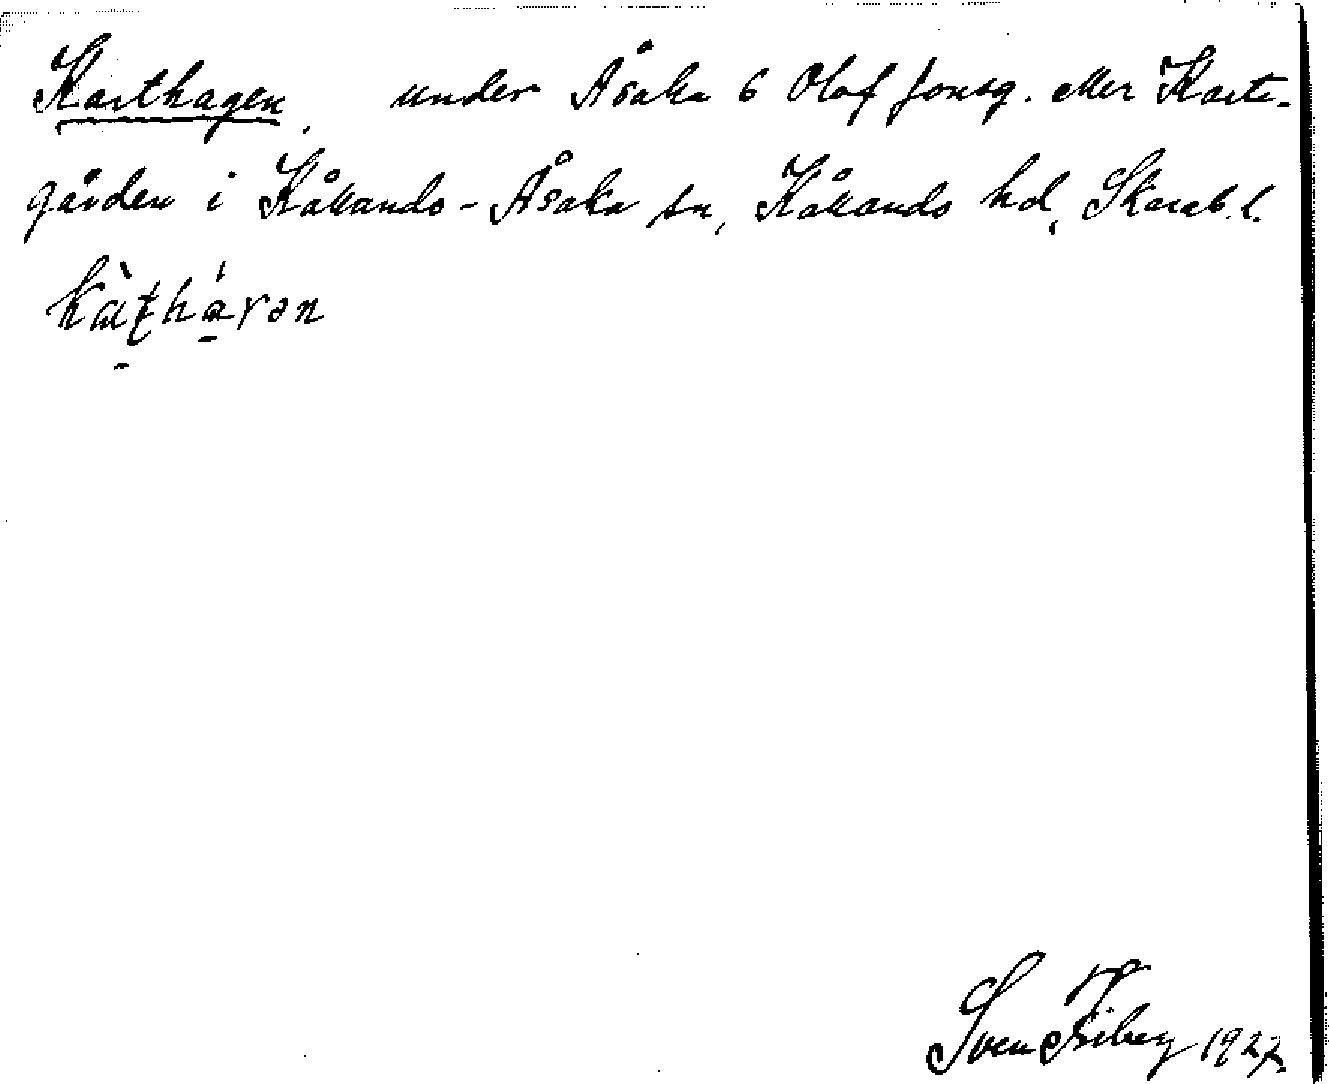 Karthagen, under Åsaka 6 Olof Jonsg. eller Karta-
gården i Kållands-Åsaka sn, Kållands hd, Skarab. l.
kàtháɤən
Sven Fiberg 1927.